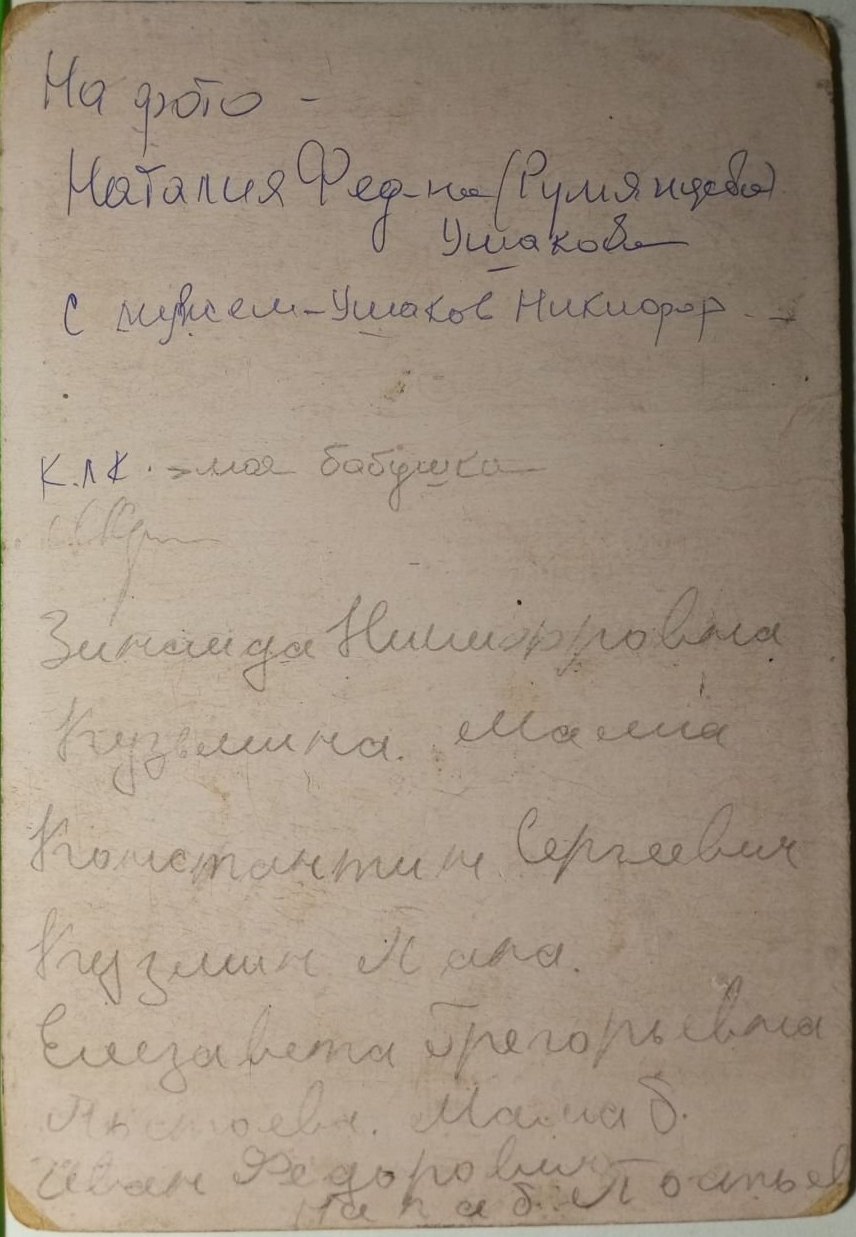 На фото -
Наталия Фед-на (Румянцева)
Ушакова
с мужем - Ушаков Никифор
К.Л К. → моя бабушка
Зинаида Никифоровна
Кузьмина. Мама
Константин Сергеевич
Кузмин Папа.
Елезавета Грегорьевна
Мама б.
Иван Федорович
Папа б.